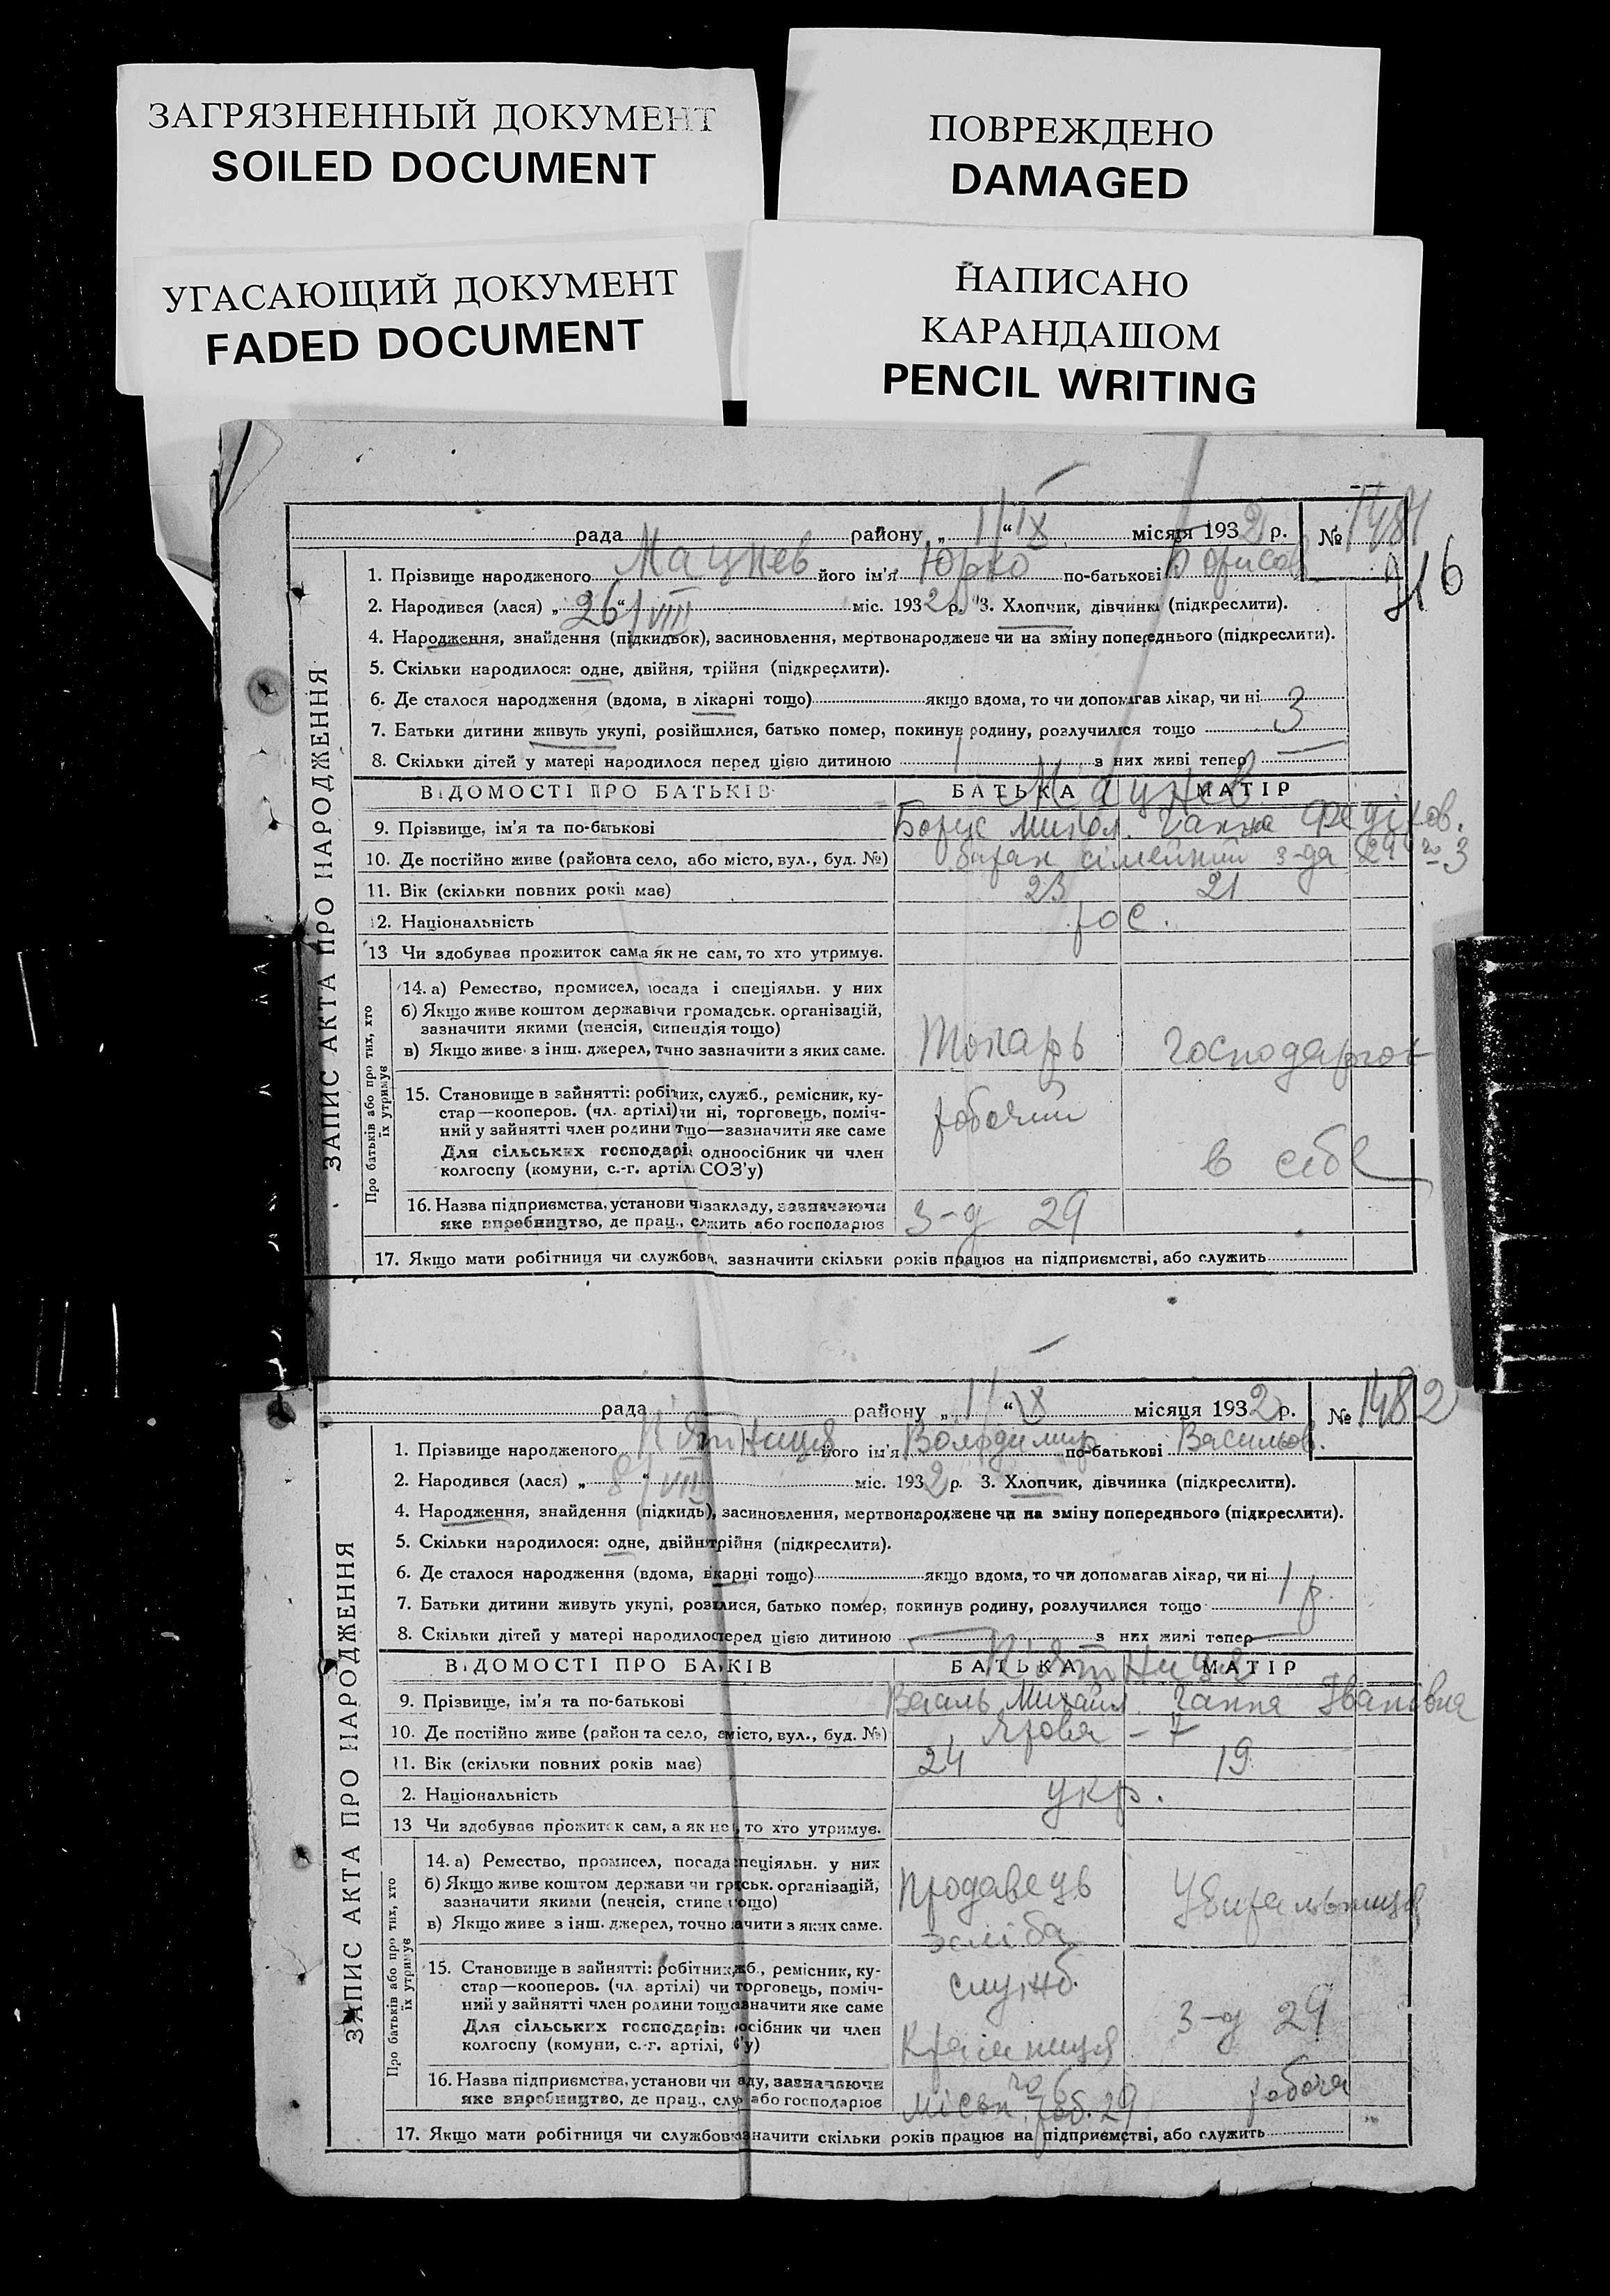 ЗАГРЯЗНЕННЫЙ ДОКУМЕНТ
SOILED DOCUMENT
ПОВРЕЖДЕНО
DAMAGED
УГАСАЮЩИЙ ДОКУМЕНТ
FADED DOCUMENT
НАПИСАНО
КАРАНДАШОМ
PENCIL WRITING
рада району „ 1 “ IX місяця 1932 р. № 1481
216
ЗАПИС АКТА ПРО НАРОДЖЕННЯ
1. Прізвище народженого Мацнев його ім'я Юрко по-батькові Борисов
2. Народився (лася) „ 26 “ VIII міс. 1932 р. 3. Хлопчик, дівчинка (підкреслити).
4. Народження, знайдення (підкидьок), засиновлення, мертвонароджене чи на зміну попереднього (підкреслити).
5. Скільки народилося: одне, двійня, трійня (підкреслити).
6. Де сталося народження (вдома, в лікарні тощо) якщо вдома, то чи допомагав лікар, чи ні
7. Батьки дитини живуть укупі, розійшлися, батько помер, покинув родину, розлучилися тощо 3
8. Скільки дітей у матері народилося перед цією дитиною 1 з них живі тепер
ВІДОМОСТІ ПРО БАТЬКІВ БАТЬКА МАТІР
Мацнев
9. Прізвище, ім'я та по-батькові Борис Микол. Ганна
10. Де постійно живе (район та село, або місто, вул., буд. №) барак сімейний з-да 29 № 3
11. Вік (скільки повних років має) 23 21
12. Національність рос.
13 Чи здобуває прожиток сам, а як не сам, то хто утримує.
Про батьків або про тих, хто
їх утримує
14. а) Ремество, промисел, посада і спеціяльн. у них
б) Якщо живе коштом держави чи громадськ. організацій,
зазначити якими (пенсія, стипендія тощо)
в) Якщо живе з інш. джерел, точно зазначити з яких саме. Токарь Господарюк
15. Становище в зайнятті: робітник, служб., ремісник, ку-
стар—кооперов. (чл. артілі) чи ні, торговець, поміч-
ний у зайнятті член родини тощо—зазначити яке саме робочий
Для сільських господарів: одноосібник чи член
колгоспу (комуни, с.-г. артілі, СОЗ'у) в себе
16. Назва підприємства, установи чи закладу, зазначаючи
яке виробництво, де прац., служить або господарює з-д 29
17. Якщо мати робітниця чи службовка, зазначити скільки років працює на підприємстві, або служить
рада району „ 1 “ IX місяця 1932 р. № 1482
ЗАПИС АКТА ПРО НАРОДЖЕННЯ
1. Прізвище народженого П'ятниця його ім'я Володимир по-батькові Васильов.
2. Народився (лася) „ 8 “ VIII міс. 1932 р. 3. Хлопчик, дівчинка (підкреслити).
4. Народження, знайдення (підкидь), засиновлення, мертвонароджене чи на зміну попереднього (підкреслити).
5. Скільки народилося: одне, двійня, трійня (підкреслити).
6. Де сталося народження (вдома, в лікарні тощо) якщо вдома, то чи допомагав лікар, чи ні
7. Батьки дитини живуть укупі, розійшлися, батько помер, покинув родину, розлучилися тощо 1 р.
8. Скільки дітей у матері народилося перед цією дитиною — з них живі тепер —
ВІДОМОСТІ ПРО БАТЬКІВ БАТЬКА МАТІР
П'ятниця
9. Прізвище, ім'я та по-батькові Василь Михайл. Ганна Іванівна
10. Де постійно живе (район та село, або місто, вул., буд. №) Ярова - 7
11. Вік (скільки повних років має) 24 19
2. Національність укр.
13 Чи здобуває прожиток сам, а як не сам, то хто утримує.
Про батьків або про тих, хто
їх утримує
14. а) Ремество, промисел, посада і спеціяльн. у них
б) Якщо живе коштом держави чи громадськ. організацій,
зазначити якими (пенсія, стипендія тощо)
в) Якщо живе з інш. джерел, точно зазначити з яких саме. Продавець хліба Убиральниця
15. Становище в зайнятті: робітник, служб., ремісник, ку-
стар—кооперов. (чл. артілі) чи ні, торговець, поміч-
ний у зайнятті член родини тощо—зазначити яке саме служб. з-д 29
Для сільських господарів: одноосібник чи член
колгоспу (комуни, с.-г. артілі, СОЗ'у) Крамниця
16. Назва підприємства, установи чи закладу, зазначаючи № 6
яке виробництво, де прац., служить або господарює міськ. роб. 29 робоча
17. Якщо мати робітниця чи службовка, зазначити скільки років працює на підприємстві, або служить